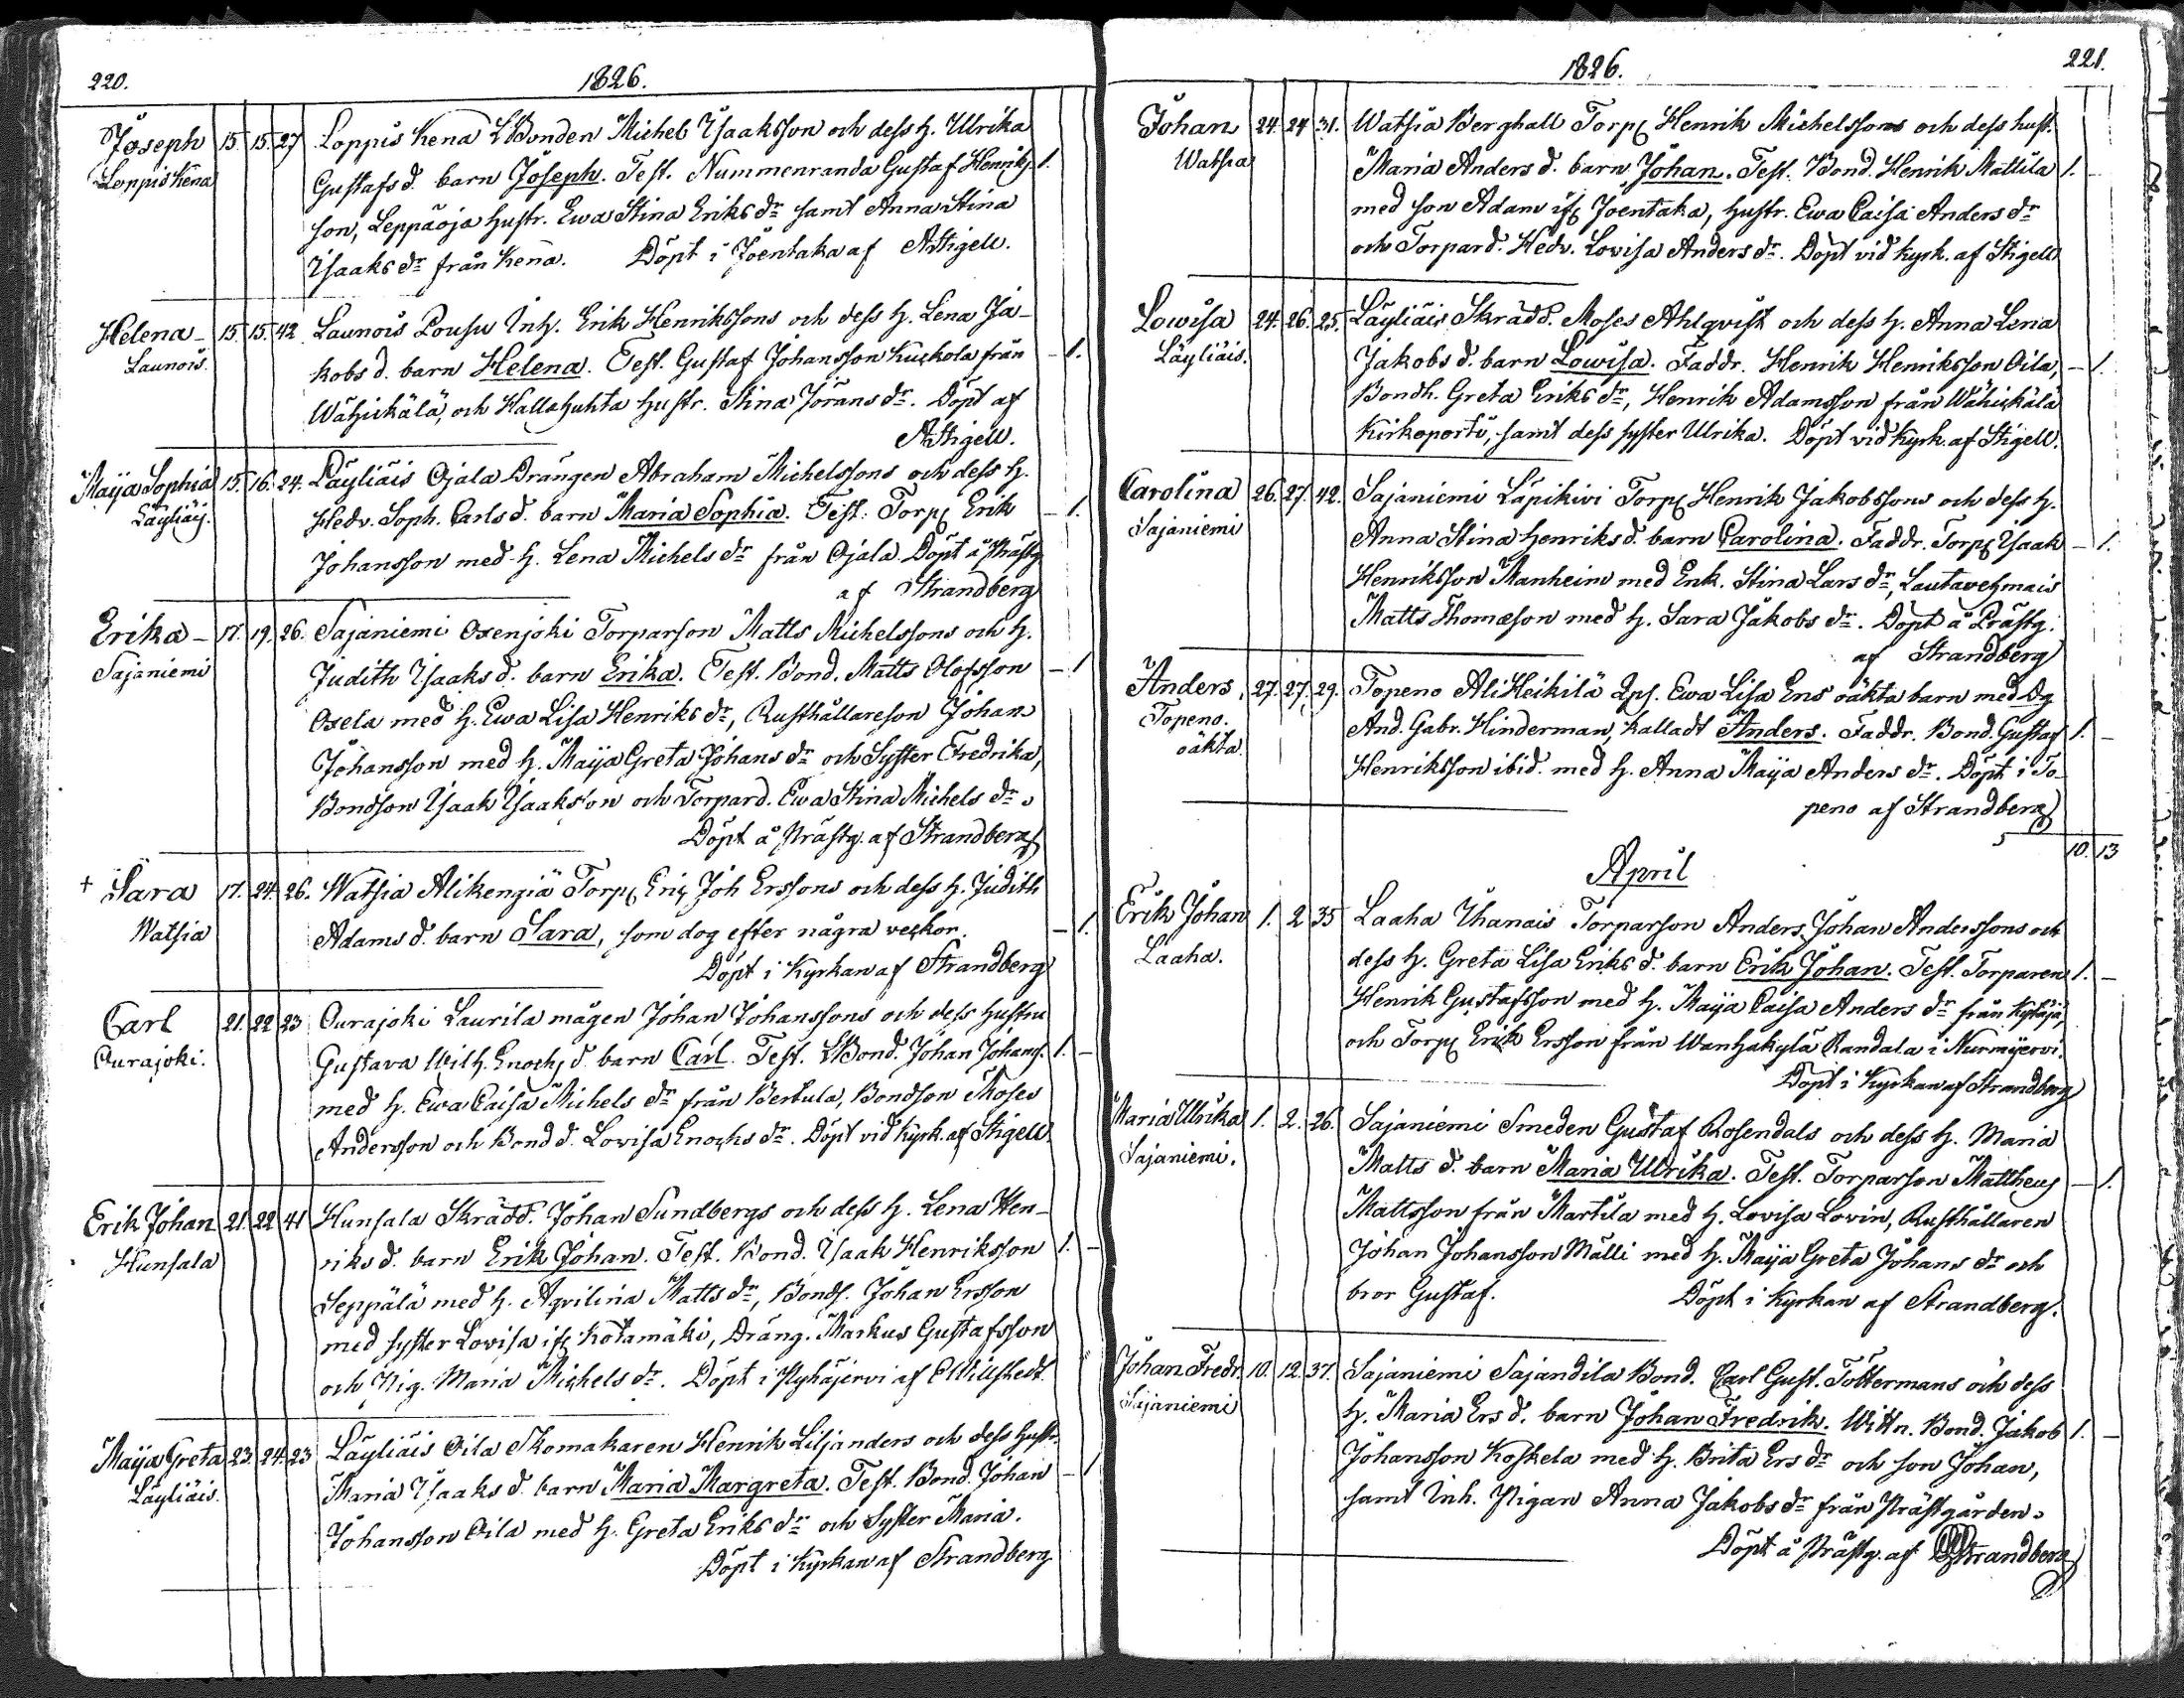 220. 1826.
Joseph 15. 15. 27 Loppis Kena LBonden Michel Isaaksson och dess h. Ulrika
Loppis Kena Gustafs d. barn Joseph. Test. Nummenranda Gustaf Henriks- 1.
son, Leppäoja hustr. Ewa Stina Eriks dr samt Anna Stina
Isaaks dr från Kena. Döpt i Joentaka af AStigell.
Helena - 15. 15. 42 Launois Pousu Inh. Erik Henrikssons och dess h. Lena Ja-
Launois. kobs d. barn Helena. Test. Gustaf Johansson Kuckola från - 1.
Wähickälä, och Hallahuhta hustr. Stina Jörans dr. Döpt af
AStigell.
Maija Sophia 15. 16. 24. Läyliäis Ojala Drängen Abraham Michelssons och dess h.
Läyliäis. Hedv. Soph. Carls d. barn Maria Sophia. Test. Torp. Erik - 1.
Johansson med h. Lena Michels dr från Ojala. Döpt å Prästg.
af Strandberg
Erika - 17. 19. 26. Sajaniemi Oxenjoki Torparson Matts Michelssons och h.
Sajaniemi Judith Isaaks d. barn Erika. Test. Bond. Matts Olofsson - 1
Oxela med h. Ewa Lisa Henriks dr, Rusthållareson Johan
Johansson med h. Maija Greta Johans dr och Syster Fredrika,
Bondson Isaak Isaaksson och Torpard. Ewa Stina Michels dr.
Döpt å Prästg. af Strandberg
+ Sara 17. 24. 26. Watsia Alikengiä Torp. Eric Joh Erssons och dess h. Judith
Watsia Adams d. barn Sara, som dog efter några veckor. - 1.
Döpt i Kyrkan af Strandberg
Carl 21. 22 23 Ourajoki Laurila mågen Johan Johanssons och dess hustru
Ourajoki. Gustava Wilh. Enochs d barn Carl. Test. LBond. Johan Johans. 1. -
med h. Ewa Caisa Michels dr från Bertula, Bondson Moses
Andersson och Bond d. Lovisa Enochs dr. Döpt vid Kyrk. af Stigell
Erik Johan 21. 22 41 Hunsala Skrädd. Johan Sundbergs och dess h. Lena Hen-
Hunsala riks d. barn Erik Johan. Test. Bond. Isaak Henriksson 1. -
Seppälä med h. Aqvilina Matts dr, Bonds. Johan Ersson
med syster Lovisa ifr Kotamäki, Dräng. Markus Gustafsson
och Pig. Maria Michels dr. Döpt i Pyhäjervi af
Maija Greta 23. 24. 23 Läyliäis Oila Skomakaren Henrik Liljanders och dess hustr.
Läyliäis. Maria Isaaks d. barn Maria Margreta. Test. Bond. Johan - 1
Johansson Oila med h. Greta Eriks dr och Syster Maria.
Döpt i Kyrkan af Strandberg
1826. 221.
Johan 24. 24 31. Watsia Berghall Torp. Henrik Michelssons och dess hust.
Watsia Maria Anders d. barn Johan. Test. Bond. Henrik Mattila 1. -
med son Adam ifr Joentaka, hustr. Ewa Caisa Anders dr
och Torpard. Hedv. Lovisa Anders dr. Döpt vid Kyrk. af Stigell
Lowisa 24. 26. 25. Läyliäis Skrädd. Moses Ahlqvist och dess h. Anna Lena
Läyliäis. Jakobs d. barn Lowisa. Faddr. Henrik Henriksson Oila, - 1.
Bondh. Greta Eriks dr, Henrik Adamsson från Wähickälä
Kirkoporti, samt dess syster Ulrika. Döpt vid Kyrk. af Stigell.
Carolina 26. 27. 42. Sajaniemi Läpikivi Torp. Henrik Jakobssons och dess h.
Sajaniemi Anna Stina Henriks d. barn Carolina. Faddr. Torp. Isaak - 1.
Henriksson Manheim med Enk. Stina Lars dr, Lautavehmais
Matts Thomæson med h. Sara Jakobs dr. Döpt å Prästg.
af Strandberg
Anders, 27. 27. 29. Topeno AliHeikilä Qps. Ewa Lisa Ers oäkta barn med Dg
Topeno. And. Gabr. Hinderman, kalladt Anders. Faddr. Bond. Gustaf 1. -
oäkta. Henriksson ibid. med h. Anna Maija Anders dr. Döpt i To-
peno af Strandberg
10. 13
April
Erik Johan 1. 2 35 Laaha Uhanais Torparson Anders Johan Anderssons och
Laaha. dess h. Greta Lisa Eriks d. barn Erik Johan. Test. Torparen 1. -
Henrik Gustafsson med h. Maija Caisa Anders dr från Kytäjä,
och Torp. Erik Ersson från Wanhakylä Randala i Nurmijervi.
Döpt i Kyrkan af Strandberg
Maria Ulrika 1. 2. 26. Sajaniemi Smeden Gustaf Rosendals och dess h. Maria
Sajaniemi. Matts d. barn Maria Ulrika. Test. Torparson Mattheus - 1.
Mattsson från Martila med h. Lovisa Lovin, Rusthållaren
Johan Johansson Mälli med h. Maija Greta Johans dr och
bror Gustaf. Döpt i Kyrkan af Strandberg.
Johan Fredr. 10. 12. 37. Sajaniemi Sajandila Bond. Carl Gust. Töttermans och dess
Sajaniemi h. Maria Ers d. barn Johan Fredrik. Wittn. Bond. Jakob 1. -
Johansson Koskela med h. Brita Ers dr och son Johan,
samt Inh. Pigan Anna Jakobs dr från Prästgården.
Döpt å Prästg. af Strandberg